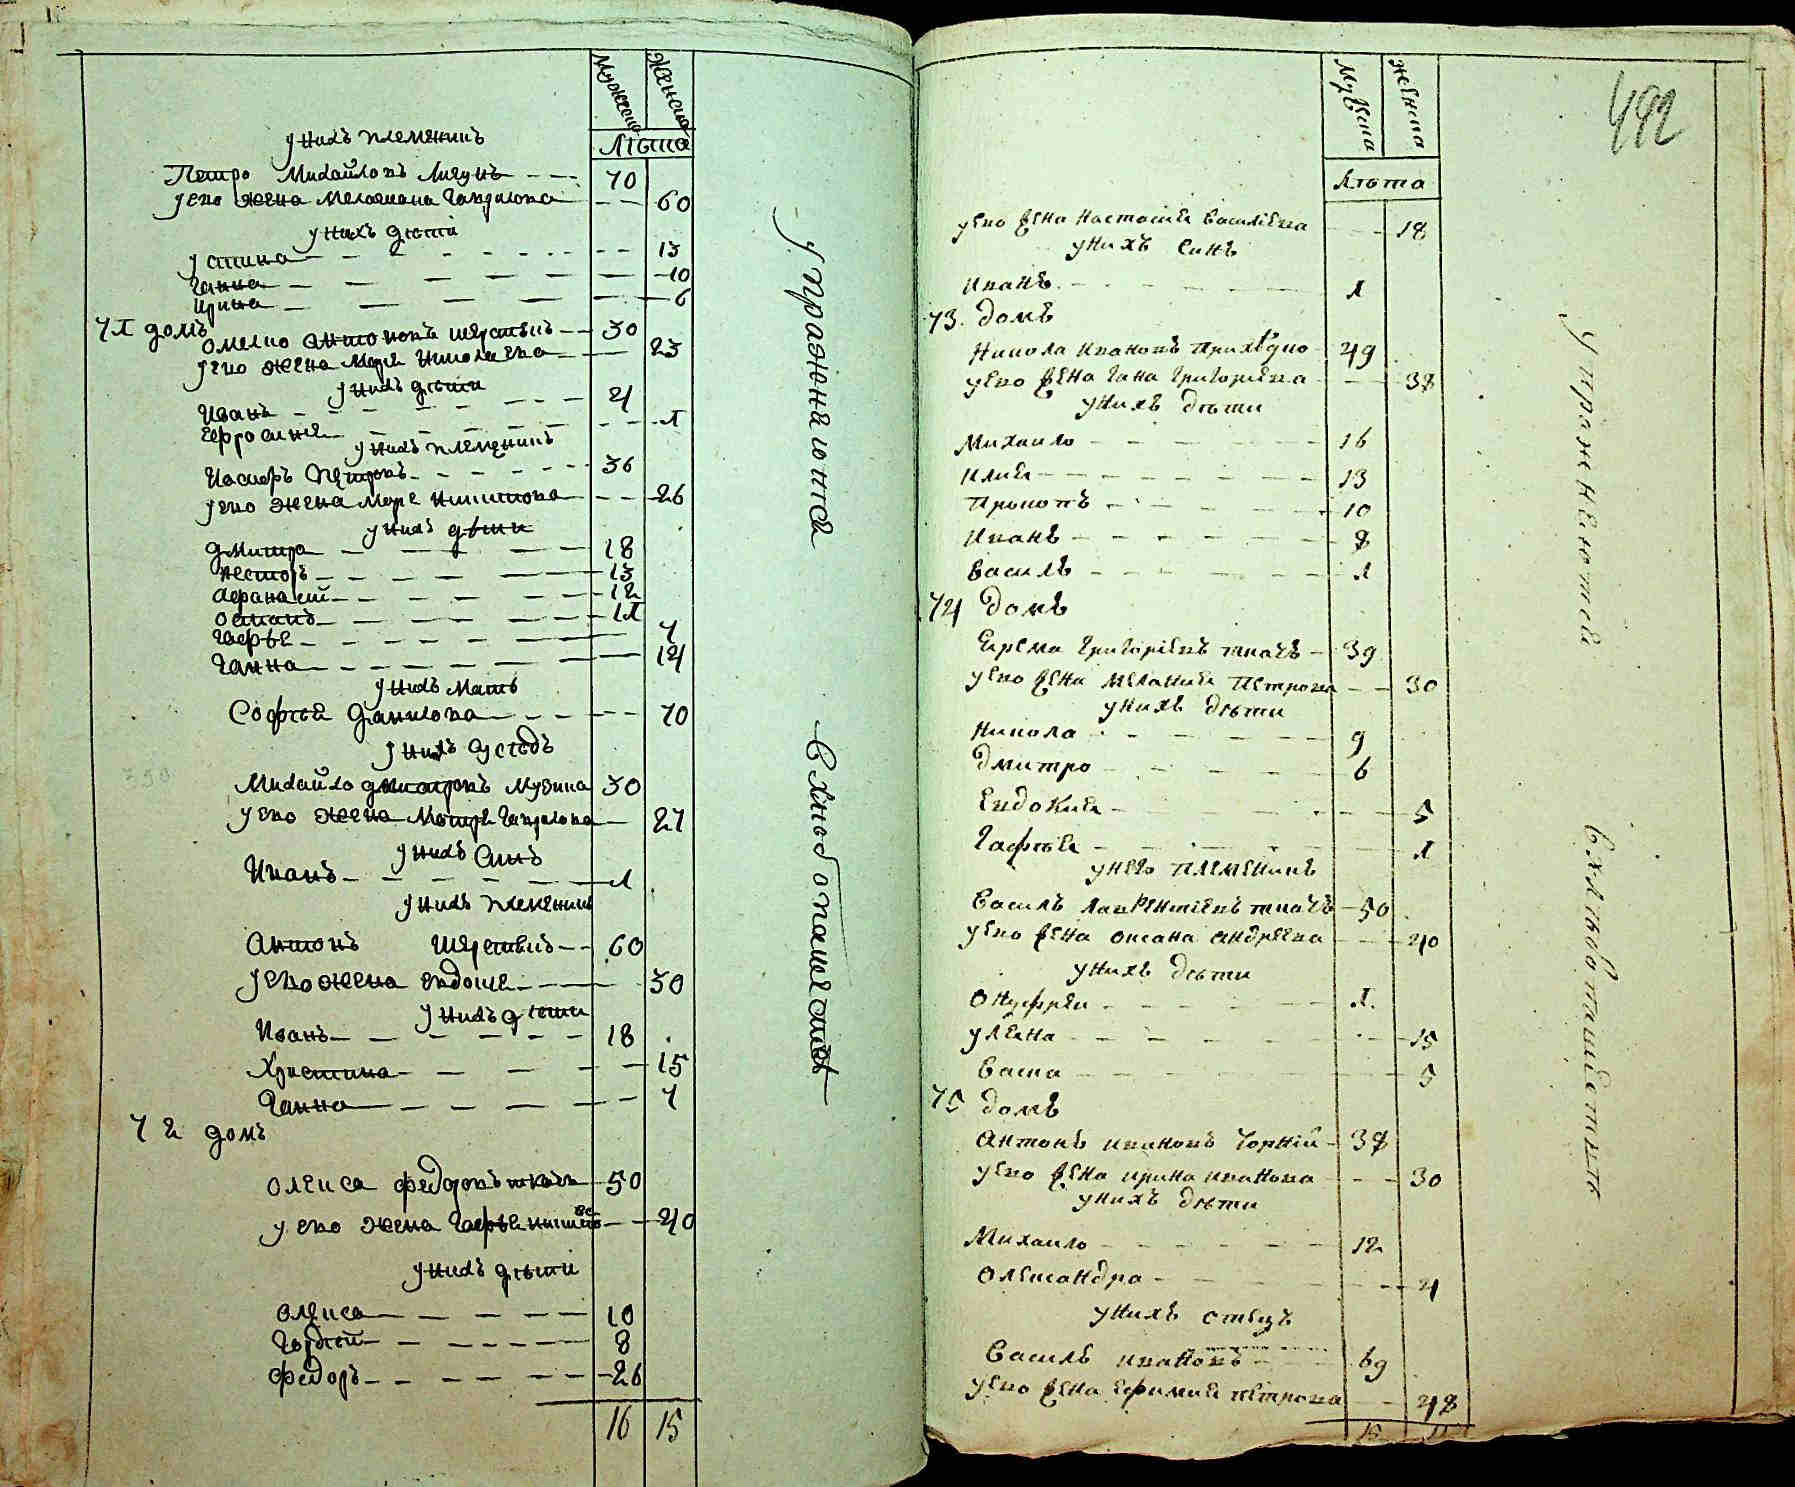 Мужеска Женска
Лѣта
у нихъ племенникъ
Петро Михайловъ 70
у его жена Гаврилова 60
у нихъ дѣти
Устина 13
Ганна 10
Ирина 6
71 домъ
Омелко Антоновъ Шерстюкъ 30
у его жена Мария Николаева 23
у нихъ дѣти
Иванъ 4
Ефросиния 1
у нихъ племенникъ
Петровъ 36
у его жена Мария Никитова 26
у нихъ дѣти
Дмитро 18
Несторъ 13
Афанасий 12
Остапъ 11
Гафья 7
Ганна 14
у нихъ мать
Софѣя Данилова 70
у нихъ сусѣдъ
Михайло Дмитровъ Музика 30
у его жена Мотря Гаврилова 27
у нихъ синъ
Иванъ 1
у нихъ племенникъ
Антонъ Шерстюкъ 60
у его жена Евдокия 50
у нихъ дѣти
Иванъ 18
Христина 15
Ганна 7
72 домъ
Олекса Федоровъ ткачъ 50
у его жена Гафья 40
у нихъ дѣти
Олекса 10
Гордѣй 8
Федоръ 26
16 15
Упражняются
в хлѣбопашествѣ
492
Мужеска Женска
Лѣта
у его жена Настасия Василиева 18
у нихъ синъ
Иванъ 1
73 домъ
Никола Ивановъ Приходко 49
у его жена Гана Григориева 38
у нихъ дѣти
Михаило 16
Илия 13
Прокопъ 10
Иванъ 8
Василь 1
74 домъ
Ерема Григоріевъ ткачъ 39
у его жена Мелания Петрова 30
у нихъ дѣти
Никола 9
Дмитро 6
Евдокия 5
Гафѣя 1
у него племеникъ
Василь Лаврентіевъ ткачъ 50
у его жена Оксана Андреева 40
у нихъ дѣти
Онуфрѣи 1
Уляна 15
Васса 5
75 домъ
Антонъ Ивановъ Чорній 38
у его жена Ирина Иванова 30
у нихъ дѣти
Михаило 12
Олександра 4
у нихъ отецъ
Василь Ивановъ 69
у его жена Ефимия Петрова 48
Упражнеютея
в хлѣбопашествѣ